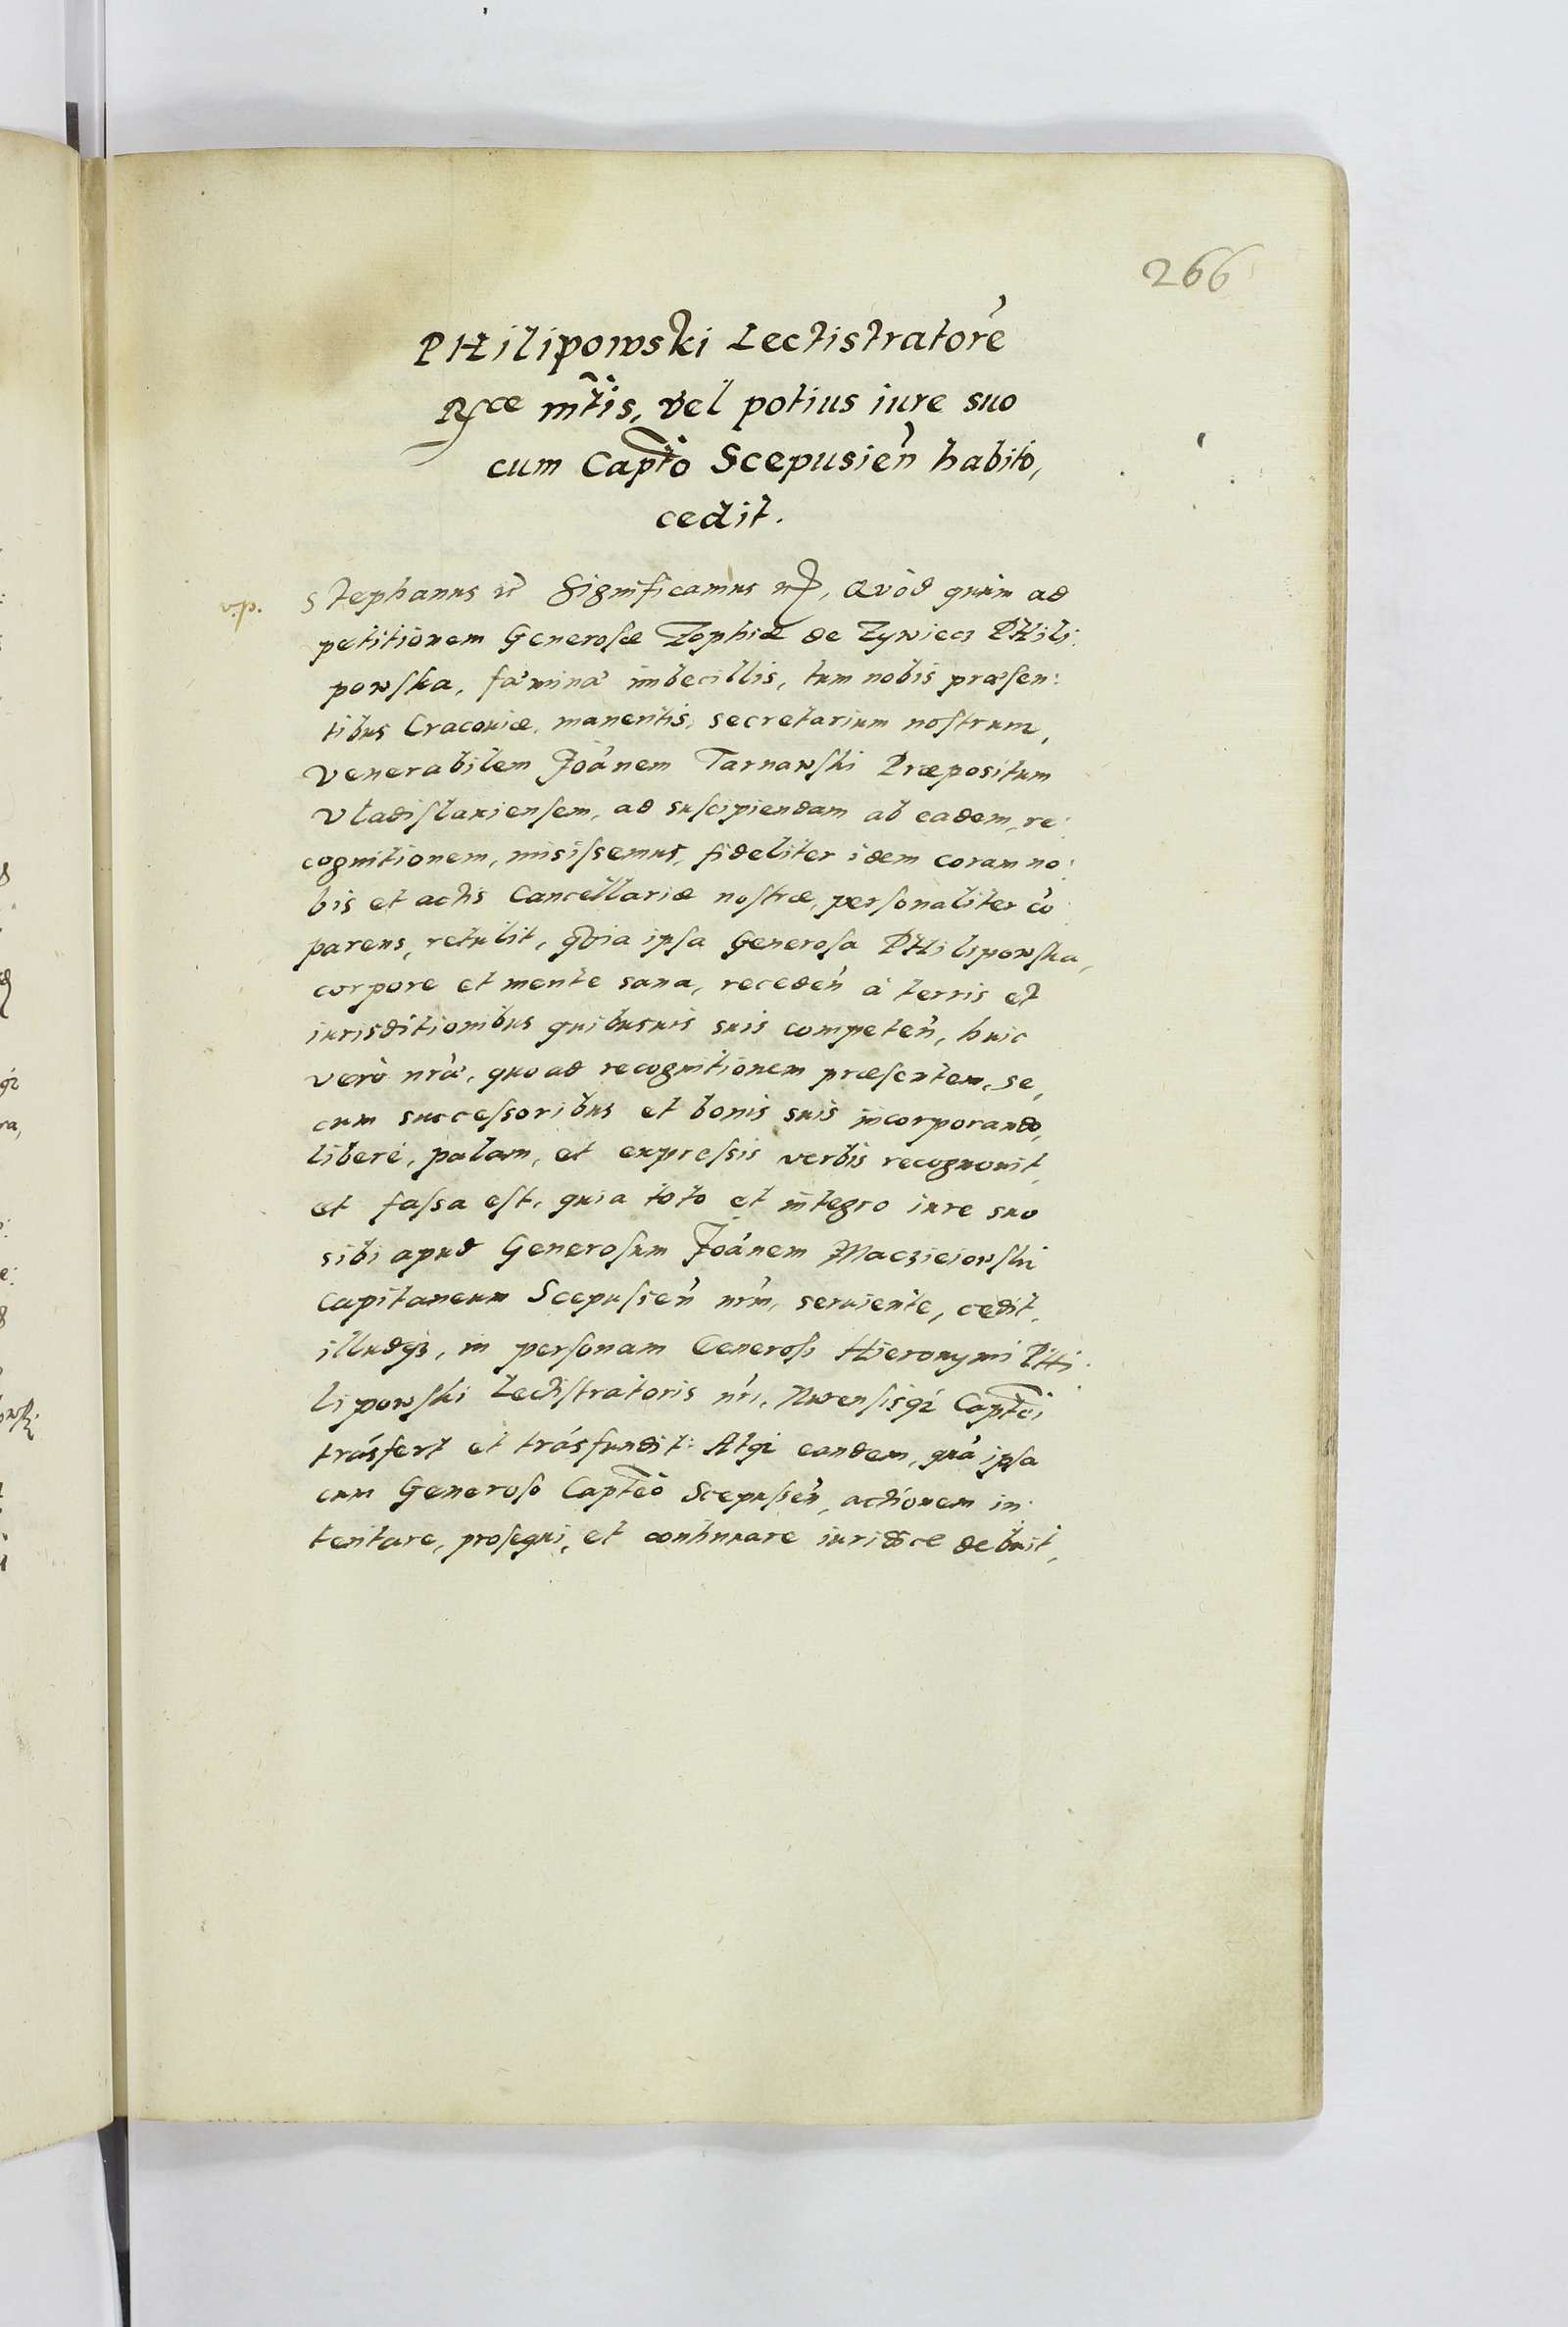 266
PHilipowski Lectistratorē
Rgᵉ mtis, vel potius iure suo
cum Capto Scepusien̄ habito,
cedit.
v.p.
Stephanus Significamus Quòd quùm ad
petitionem Generosæ Zophiæ de Zywiecz PHili:
powska, fæminæ imbecillis, tum nobis præsen:
tibus Cracouiæ, manentis, secretarium nostrum,
Venerabilem Joānem Tarnawski Præpositum
Vladislauiensem, ad suscipiendam ab eadem, re:
cognitionem, misissemus, fideliter idem coram no:
bis et actis Cancellariæ nostræ, personaliter cō
parens, retulit, quia ipsa Generosa PHilipowska,
corpore et mente sana, receden̄ à terris et
iurisditionibus quibusuis suis competen̄, huic
verò nr̄æ, quo ad recognitionem præsentem, se,
cum successoribus et bonis suis incorporando,
liberè, palam, et expressis verbis recognouit,
et fassa est, quia toto et integro iure suo
sibi apud Generosum Joānem Maczieiowski
Capitaneum Scepusien̄ nr̄m, seruiente, cedit,
illudq3, in personam Generosi Hieronymi PHi
lipowski Lectistratoris nr̄i, Nwensisq3 Captei
trāsfert et trāsfundit: Atq3 eandem, quā ipsa
cum Generoso Capteo Scepusien̄, actionem in:
tentare, prosequi, et continuare iuridice debuit,